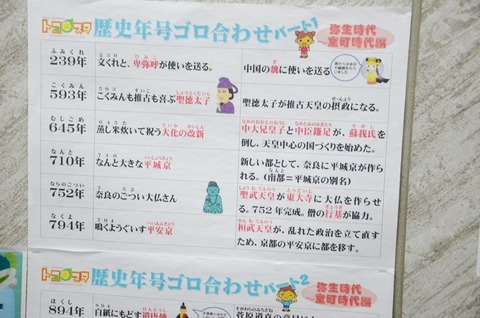 トコスタ 歴史年号ゴロ合わせパート1 弥生時代〜室町時代編
ふみくれ
239年 文くれと、卑弥呼が使いを送る。 中国の魏に使いを送る
こくみん
593年 こくみんも推古も喜ぶ聖徳太子 聖徳太子が推古天皇の摂政になる。
むしこめ
645年 蒸し米炊いて祝う大化の改新 中大兄皇子と中臣鎌足が、蘇我氏を
倒し、天皇中心の国づくりを始めた。
なんと
710年 なんと大きな平城京 新しい都として、奈良に平城京が作ら
れる。(南都=平城京の別名)
ならのこつい
752年 奈良のこつい大仏さん 聖武天皇が東大寺に大仏を作らせ
る。752年完成。僧の行基が協力。
なくよ
794年 鳴くようぐいす平安京 桓武天皇が、乱れた政治を立て直す
ため、京都の平安京に都を移す。
トコスタ 歴史年号ゴロ合わせパート2 弥生時代〜室町時代編
はくし
894年 白紙にもどす遣唐使